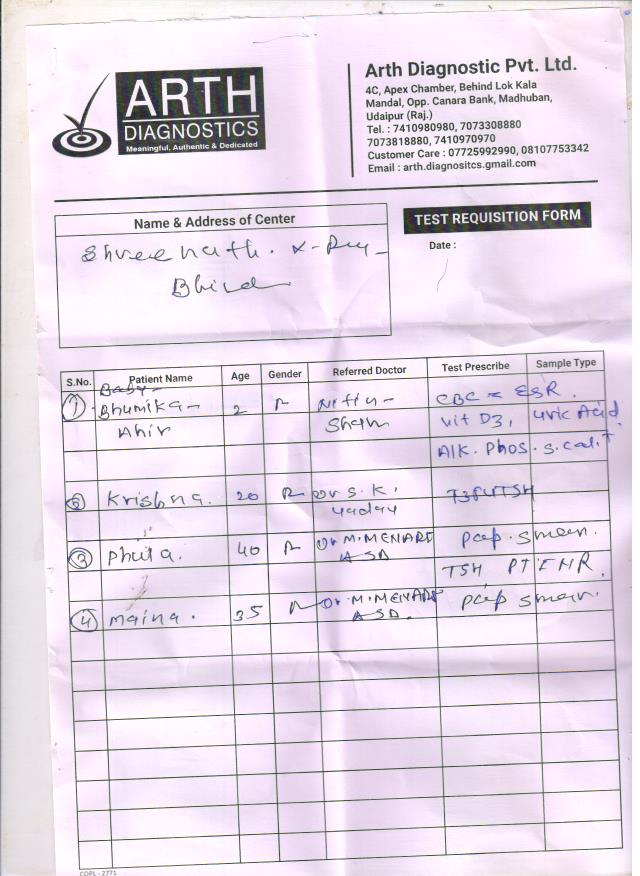 ARTH
DIAGNOSTICS
Meaningful, Authentic & Dedicated
Arth Diagnostic Pvt. Ltd.
4C, Apex Chamber, Behind Lok Kala
Mandal, Opp. Canara Bank, Madhuban,
Udaipur (Raj.)
Tel. : 7410980980, 7073308880
7073818880, 7410970970
Customer Care : 07725992990, 08107753342
Email : arth.diagnositcs.gmail.com
Name & Address of Center
Shreenath. X-Ray
Bhinder
TEST REQUISITION FORM
Date :
S.No. Patient Name Age Gender Referred Doctor Test Prescribe Sample Type
Baby
1 Bhumika 2 Nitin CBC ESR.
Ahir Shah Vit D3, uric Acid
Alk. Phos. S.cal
2 Krishna. 20 Dr S.K. T3T4TSH
yadav
3 Phula. 40 Dr M.MENARI Pap. Smear.
ASD TSH, PT INR.
4 Maina. 35 Dr. M.MENARI Pap Smear.
ASD.
COPL - 2771